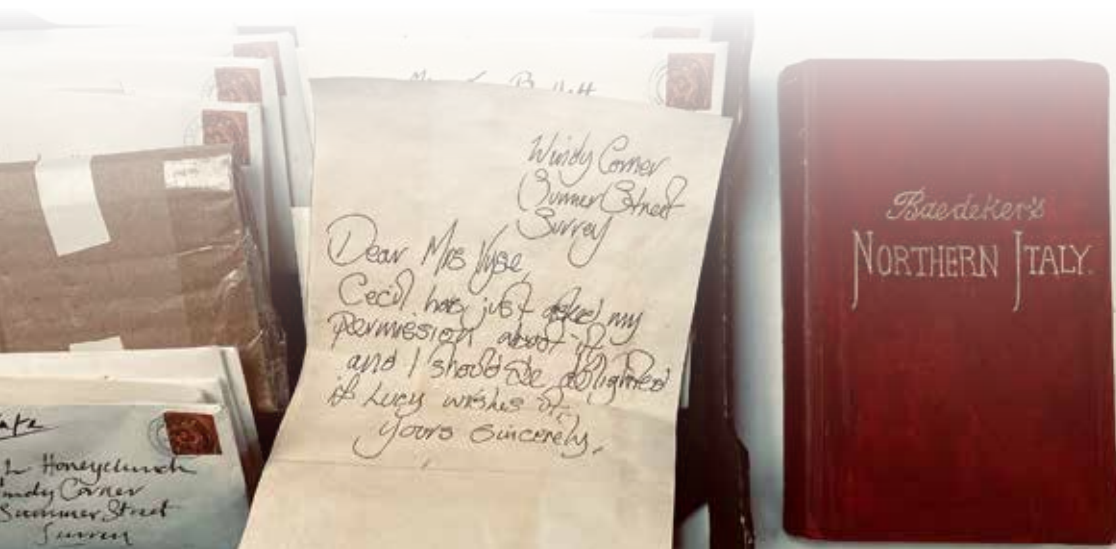 Windy Corner
Summer Street
Surrey
Dear Mrs Vyse,
Cecil has just asked my
permission about it
and I should be delighted
if Lucy wishes it,
Yours Sincerely,
Honeychurch
indy Corner
Summer Street
Surrey
Baedeker's
NORTHERN ITALY.